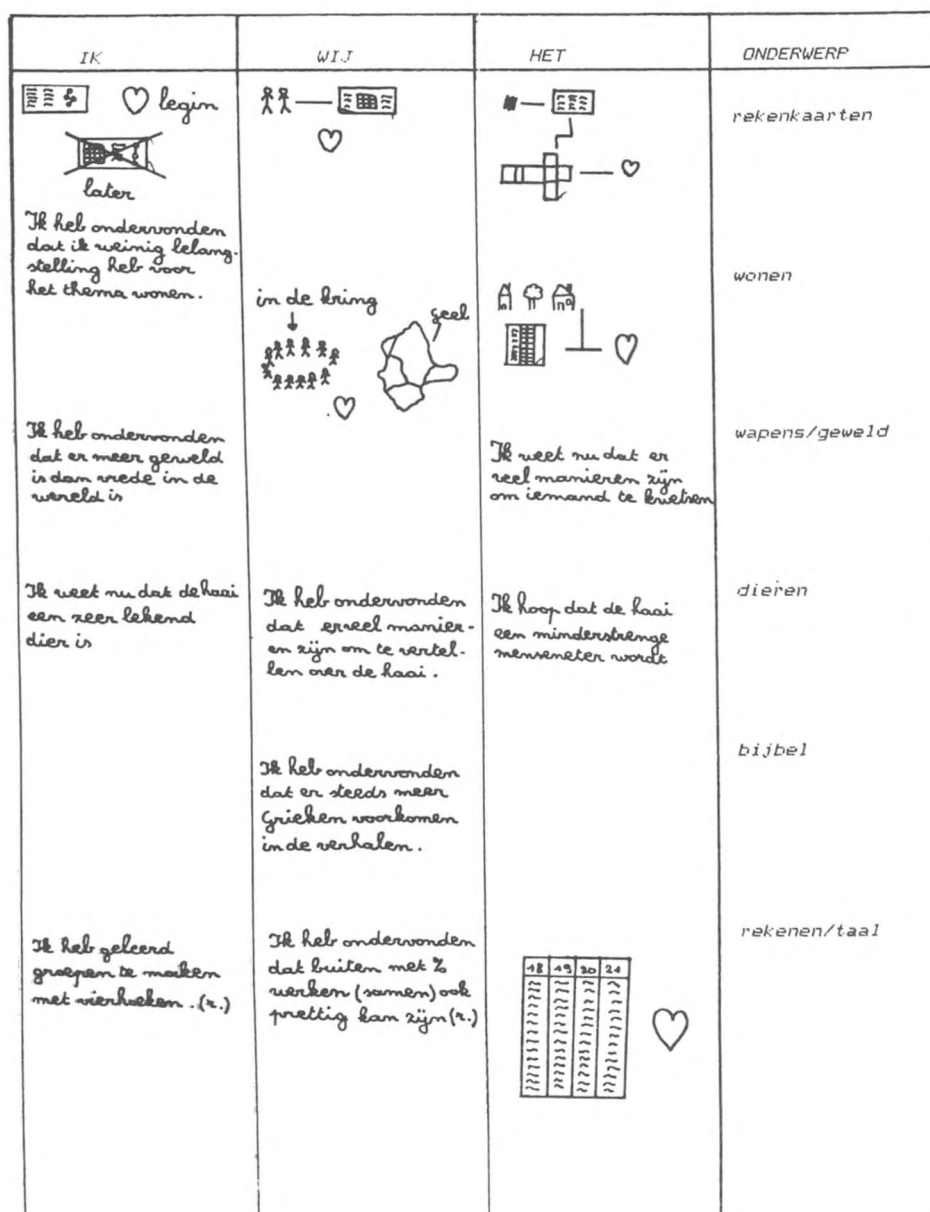 IK WIJ HET ONDERWERP
begin
later
rekenkaarten
Ik heb ondervonden
dat ik weinig belang-
stelling heb voor
het thema wonen.
in de kring
geel
wonen
Ik heb ondervonden
dat er meer geweld
is dan vrede in de
wereld is
Ik weet nu dat er
veel manieren zijn
om iemand te kwetsen
wapens/geweld
Ik weet nu dat de haai
een zeer bekend
dier is
Ik heb ondervonden
dat er veel manier-
en zijn om te vertel-
len over de haai.
Ik hoop dat de haai
een minderstrenge
menseneter wordt
dieren
Ik heb ondervonden
dat er steeds meer
Grieken voorkomen
in de verhalen.
bijbel
Ik heb geleerd
groepen te maken
met vierhoeken. (r.)
Ik heb ondervonden
dat buiten met %
werken (samen) ook
prettig kan zijn (r.)
18 19 20 21
rekenen/taal